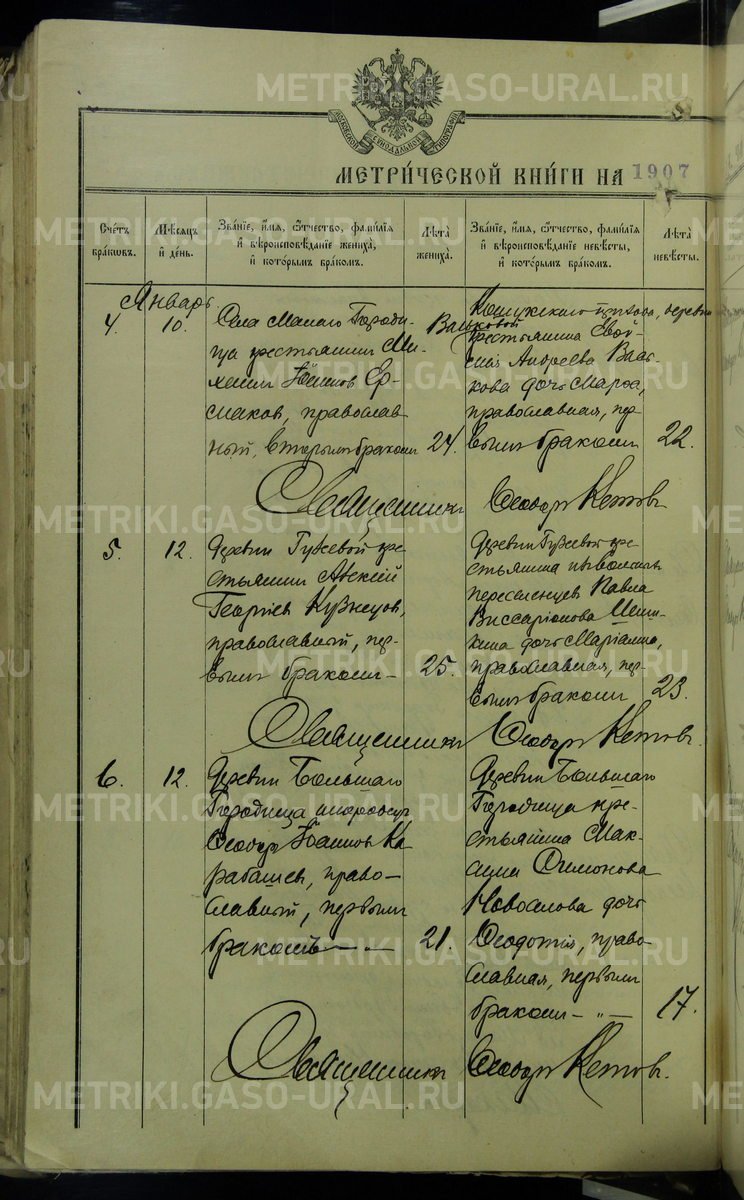 МОСКОВСКОЙ СѴНОДАЛЬНОЙ ТИПОГРАФІИ
МЕТРИ́ЧЕСКОЙ КНИ́ГИ НА 1907
Сче́тъ бра́кѡвъ.
Мѣ́сяцъ и҆ де́нь.
Зва́нїе, и҆́мя, ѻ҆́тчество, фами́лїя и҆ вѣроисповѣ́данїе жениха̀, и҆ кото́рымъ бра́комъ.
Лѣ́та жениха̀.
Зва́нїе, и҆́мя, ѻ҆́тчество, фами́лїя и҆ вѣроисповѣ́данїе невѣ́сты, и҆ кото́рымъ бра́комъ.
Лѣ́та невѣ́сты.
Январь
4.
10.
Села Малаго Городи-
ща крестьянинъ Ми-
хаилъ Іоанновъ Ер-
маковъ, православ
ный, вторымъ бракомъ
24.
деревни
Вальковой
крестьянина
Андреева
кова дочь Марѳа,
православная, пер
вымъ бракомъ
22.
Священникъ Ѳеодоръ Кетовъ
5.
12.
Деревни Гужевой кре
стьянинъ Алексій
Георгіевъ Кузнецов,
православный, пер-
вымъ бракомъ –
25.
Деревни Гужевой кре
стьянина изъ вольныхъ
переселенцевъ Павла
Виссаріонова
кина дочь Маріанна,
православная, пер
вымъ бракомъ
23.
Священникъ Ѳеодоръ Кетовъ.
6.
12.
Деревни Большаго
Городища инородецъ
Ѳеодоръ Іоанновъ Ка
рабашевъ, право–
славный, первымъ
бракомъ — " —
21.
Деревни Большаго
Городища кре-
стьянина Мак-
сима Симонова
Новоселова дочь
Ѳеодотія, право-
славная, первымъ
бракомъ — " —
17.
Священникъ Ѳеодоръ Кетовъ.
METRIKI.GASO-URAL.RU